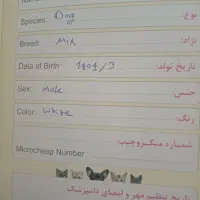 Species: Dog نوع:
Breed: Mix نژاد:
Date of Birth: 1401/3 تاریخ تولد:
Sex: Male جنس
Color: White رنگ:
Microcheap Number شماره میکروچیپ:
تاریخ تنظیم مهر و امضای دامپزشک